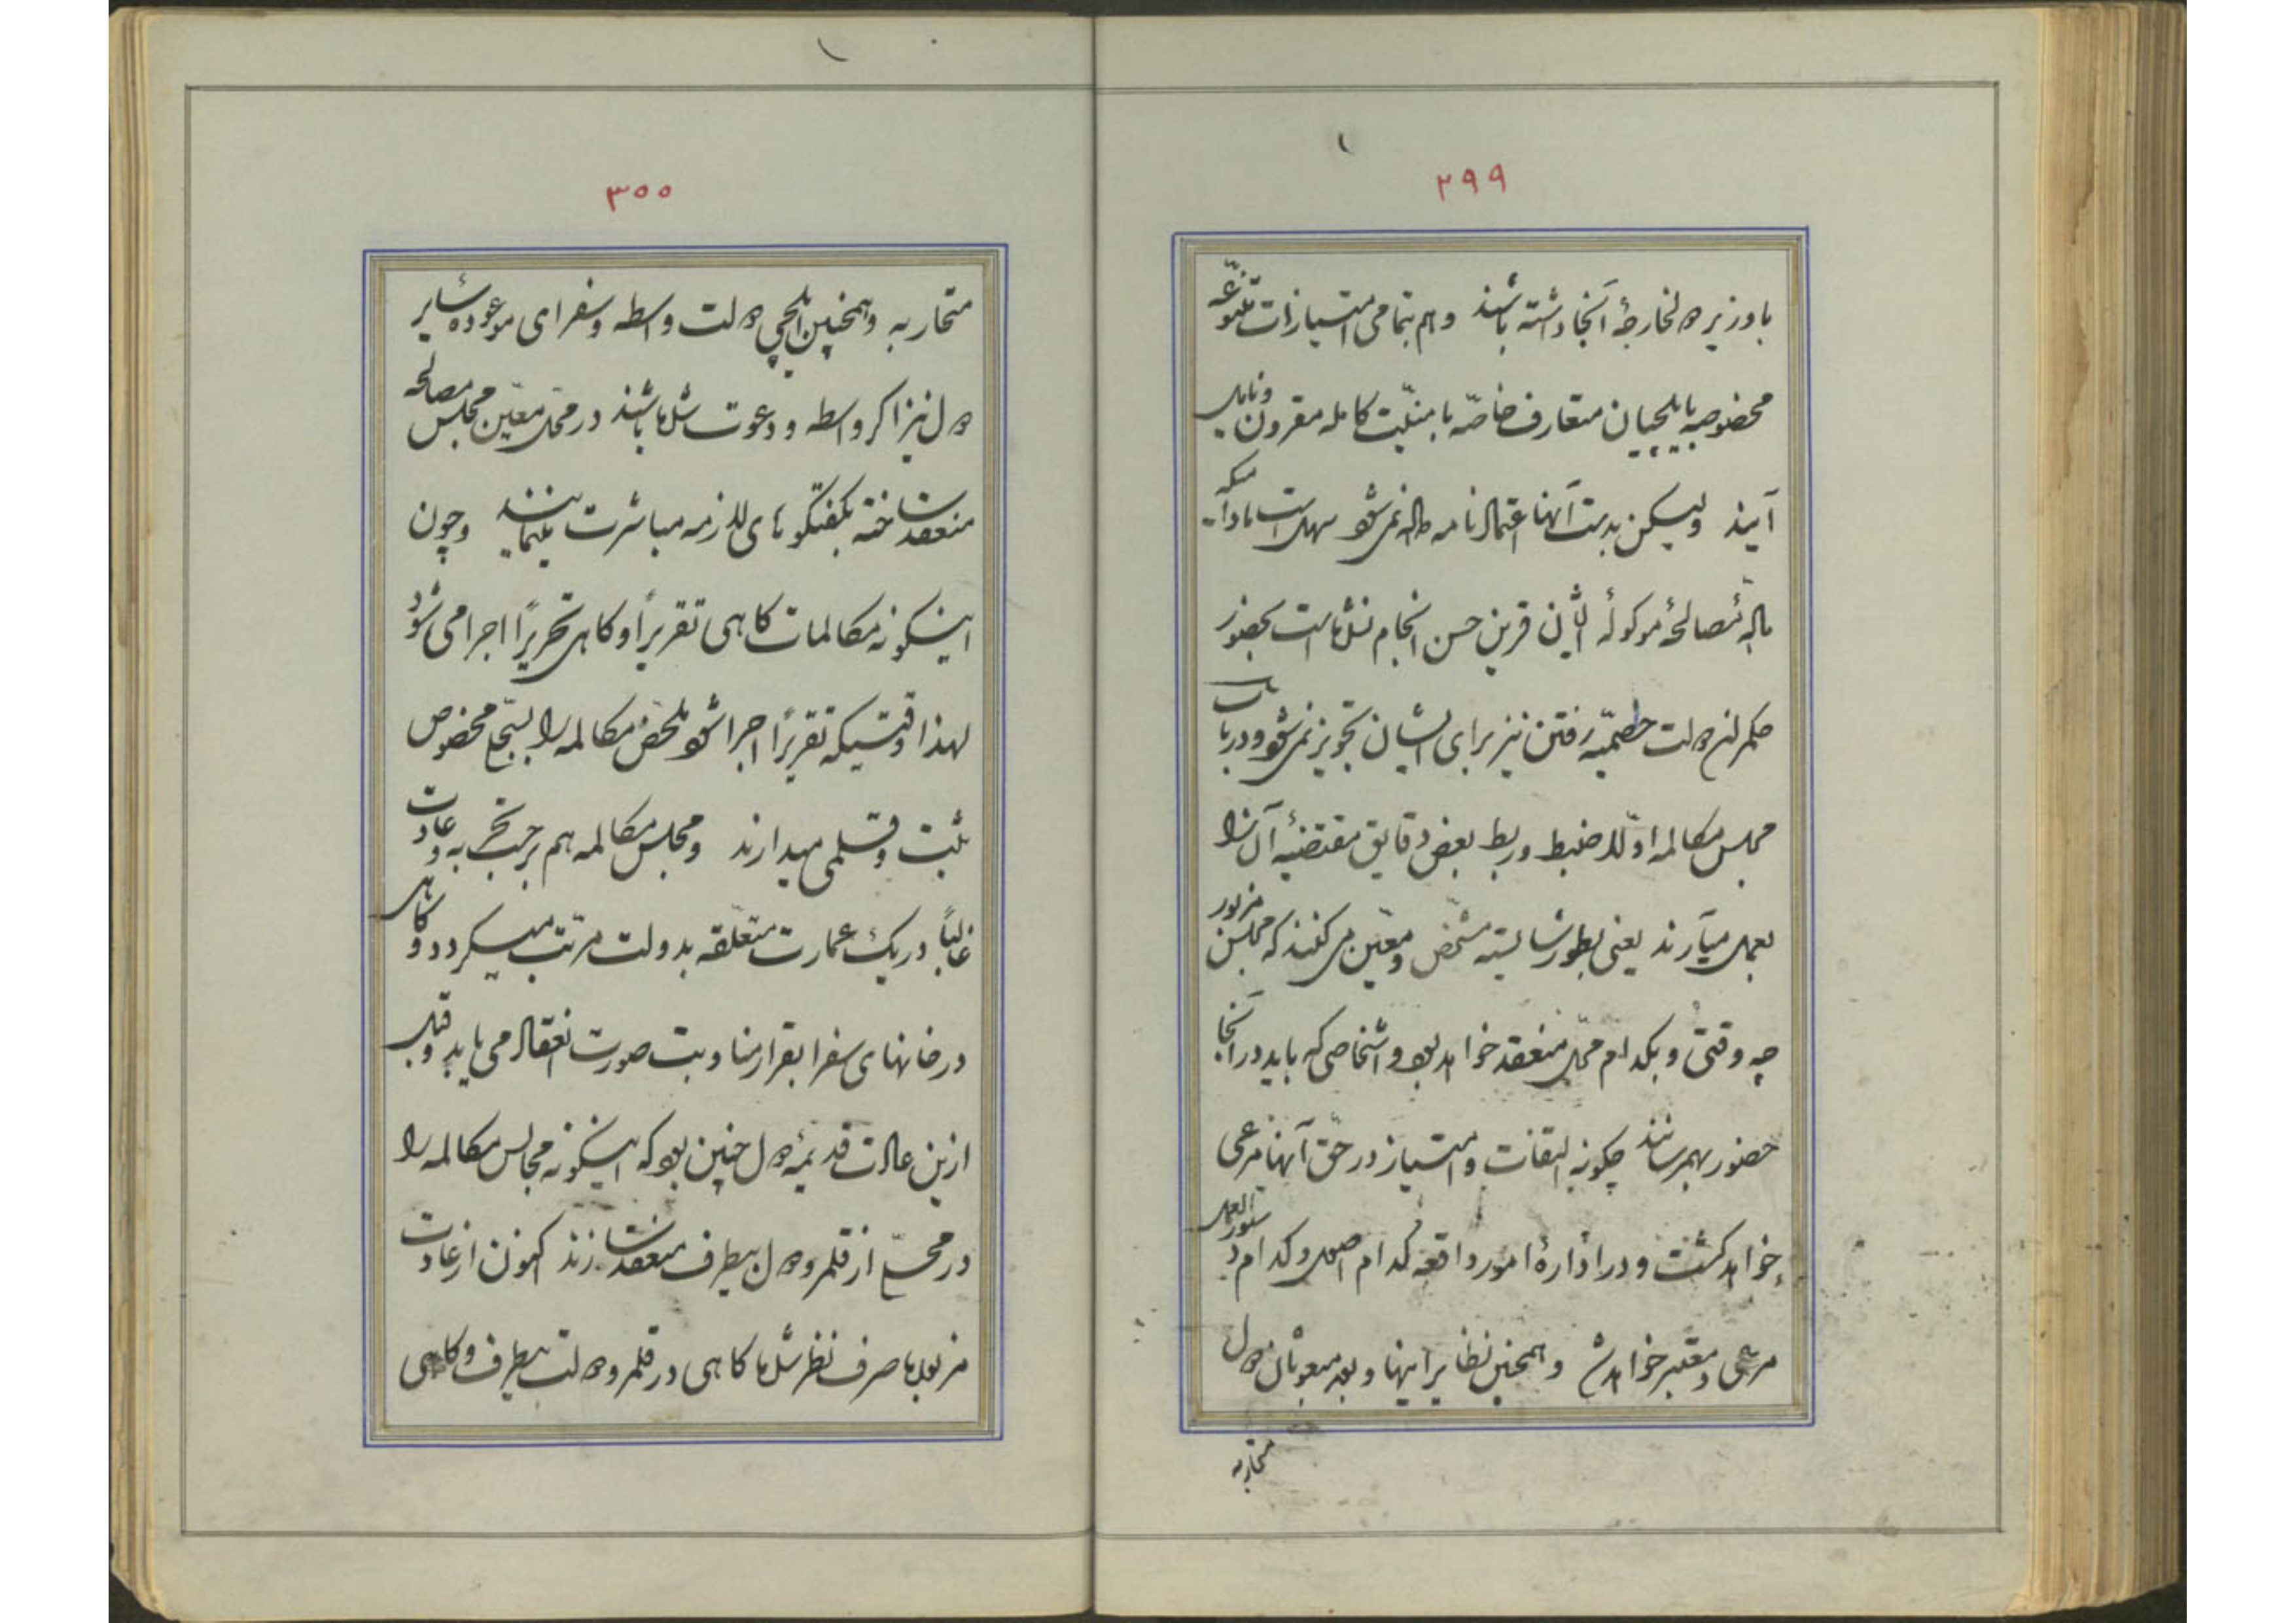 ۲۹۹
با وزیر دول خارجهٔ آنجا داشته باشند و هم بتمامی امتیازات متنوعهٔ
مخصوصه بایلچیان متعارف خاصّه بامنیّت کامله مقرون و نایل
آیند ولیکن بدست آنها اعتمادنامه داده نمیشود سهل است مادامیکه
مادهٔ مصالحهٔ موکولهٔ ایشان قرین حسن انجام نشده است بحضور
حکمران دولت خصمیّه رفتن نیز برای ایشان تجویز نمیشود و در باب
مجلس مکالمه اوّلا ضبط و ربط بعض دقایق مقتضیهٔ آن را
بعمل میآرند یعنی بطور شایسته مشخص و معیّن می کنند که مجلس مزبور
چه وقتی و بکدام محل منعقد خواهد بود و اشخاصی که باید در آنجا
حضور بهم رسانند چگونه التفات و امتیاز در حقّ آنها مرعی
خواهد گشت و در ادارهٔ امور واقعه کدام اصول و کدام دستورالعمل
مرعی و معتبر خواهد شد و همچنین نظایر اینها و بعد مبعوثان دول
متحاربه
۳۰۰
متحاربه و همچنین ایلچی دولت واسطه و سفرای موعودهٔ سایر
دول نیز اگر واسطه و دعوت شده باشند در محل معیّن مجلس مصالحه
منعقد ساخته بگفتگوهای لازمه مباشرت مینمایند و چون
اینگونه مکالمات گاهی تقریراً و گاهی تحریراً اجرا می شود
لهذا وقتیکه تقریراً اجرا شود ملخّص مکالمه را بسجّل مخصوص
ثبت و قلمی میدارند و مجلس مکالمه هم برحسب تجربه و عادت
غالباً در یک عمارت متعلّقه بدولت مرتب میگردد و گاهی
در خانهای سفرا بقرار مناوبت صورت انعقاد می یابد و قبل
ازین عادت قدیمهٔ دول چنین بود که اینگونه مجالس مکالمه را
در محلی از قلمرو دول بیطرف منعقد سازند اکنون از عادت
مزبوره صرف نظر شده گاهی در قلمرو دولت بیطرف و گاهی